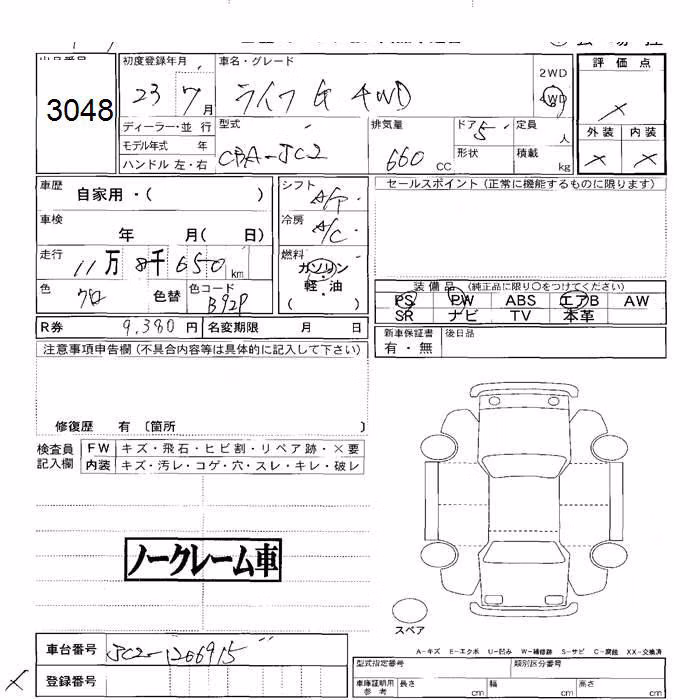 3048
初度登録年月
23 7月
車名・グレード
ライフ G 4WD
2WD
4WD
評価点
×
外装 内装
× ×
ディーラー・並行
モデル年式 年
ハンドル 左・右
型式
CBA-JC2
排気量
660 CC
ドア
5
定員
人
形状
積載
kg
車歴
自家用・( )
車検
年 月( 日)
走行
11万 8千 650 km
色
クロ
色替
色コード
B92P
シフト
A/T
冷房
A/C
燃料
ガソリン
軽・油
( )
セールスポイント(正常に機能するものに限ります)
装備品(純正品に限り○をつけてください)
PS PW ABS エアB AW
SR ナビ TV 本革
新車保証書
有・無
後日品
R券 9,380円 名変更期限 月 日
注意事項申告欄(不具合内容等は具体的に記入して下さい)
修復歴 有〔箇所 〕
検査員
記入欄
FW キズ・飛石・ヒビ割・リペア跡・×要
内装 キズ・汚レ・コゲ・穴・スレ・キレ・破レ
ノークレーム車
スペア
A-キズ E-エクボ U-凹み W-補修跡 S-サビ C-腐蝕 XX-交換済
車台番号
JC2-1206915
登録番号
×
型式指定番号
類別区分番号
車庫証明用
参考
長さ cm
幅 cm
高さ cm